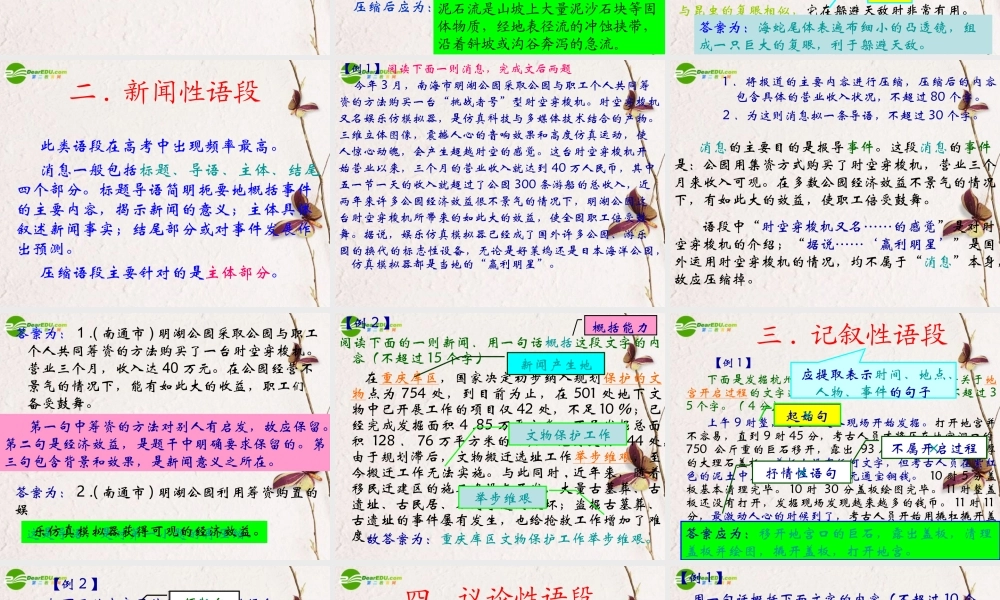 压缩后应为：
泥石流是山坡上大量泥沙石块等固
体物质，经地表径流的冲蚀挟带，
沿着斜坡或沟谷奔泻的急流。
与昆虫的复眼相似，它在躲避天敌时非常有用。
答案为：海蛇尾体表遍布细小的凸透镜，组
成一只巨大的复眼，利于躲避天敌。
二．新闻性语段
此类语段在高考中出现频率最高。
消息一般包括标题、导语、主体、结尾
四个部分。标题导语简明扼要地概括事件
的主要内容，揭示新闻的意义；主体具体
叙述新闻事实；结尾部分或对事件发展作
出预测。
压缩语段主要针对的是主体部分。
【例1】阅读下面一则消息，完成文后两题
今年3月，南海市明湖公园采取公园与职工个人共同筹
资的方法购买一台“挑战者号”型时空穿梭机。时空穿梭机
又名娱乐仿模拟器，是仿真科技与多媒体技术结合的产物。
三维立体图像，震撼人心的音响效果和高度仿真运动，使
人惊心动魄，会产生超越时空的感觉。这台时空穿梭机开
始营业以来，三个月的营业收入就达到40万人民币，其中
五一节一天的收入就超过了公园300条游船的总收入，近
两年来许多公园经济效益很不景气的情况下，明湖公园这
台时空穿梭机所带来的如此大的效益，使全园职工倍受鼓
舞。据说，娱乐仿真模拟器已经成了国外许多公园、游乐
园的换代的标志性设备，无论是好莱坞还是日本海洋公园，
仿真模拟器都是当地的“赢利明星”。
1．将报道的主要内容进行压缩，压缩后的内容
包含具体的营业收入状况，不超过80个字。
2．为这则消息拟一条导语，不超过30个字。
消息的主要目的是报导事件。这段消息的事件
是：公园用集资方式购买了时空穿梭机，营业三个
月来收入可观。在多数公园经济效益不景气的情况
下，有如此大的效益，使职工倍受鼓舞。
语段中“时空穿梭机又名……的感觉”是对时
空穿梭机的介绍；“据说……‘赢利明星’”是国
外运用时空穿梭机的情况，均不属于“消息”本身，
故应压缩掉。
答案为：1.(南通市)明湖公园采取公园与职工
个人共同筹资的方法购买了一台时空穿梭机。
营业三个月，收入达40万元。在公园经营不
景气的情况下，能有如此大的收益，职工们
备受鼓舞。
第一句中筹资的方法对别人有启发，故应保留。
第二句是经济效益，是题干中明确要求保留的。第
三句包含背景和效果，是新闻意义之所在。
答案为：2.(南通市)明湖公园利用筹资购置的
娱
乐仿真模拟器获得可观的经济效益。
【例2】
概括能力
阅读下面的一则新闻，用一句话概括这段文字的内
容（不超过15个字）
新闻产生地
在重庆库区，国家决定初步纳入规划保护的文
物点为754处，到目前为止，在501处地下文
物中已开展工作的项目仅42处，不足10％；已
经完成发掘面积4.85万平方米
积128．76万平方米的
文物保护工作
44处，
由于规划滞后，文物搬迁选址工作举步维艰，至
今搬迁工作无法实施。与此同时，近年来，随着
移民迁建区的施
举步维艰
大量古墓葬、古
遗址、古民居、
坏；盗掘古墓葬、
古遗址的事件屡有发生，也给抢救工作增加了难
度。
故答案为：重庆库区文物保护工作举步维艰。
三．记叙性语段
【例1】
下面是发掘杭州
应提取表示时间、地点、
人物、事件的句子
关于地
宫开启过程的文字
不超过3
5个字。（4分
起始句
上午9时整
现场开始发掘。打开地宫并
不容易，直到9时45分，考古人员
不属开启过程
750公斤重的巨石移开，露出
的大理石盖
抒情性语句
文字，但考古人员在
色的泥土中
元通宝铜钱。10时5分盖
板基本清理完毕。10时30分盖板绘图完毕。11时整盖
板还没有打开，发掘现场发现越来越多的钱币。11时11
分，最激动人心的时候到了，考古人员开始用撬杠撬开盖
答案应为：移开地宫口的巨石，露出盖板，清理
盖板并绘图，撬开盖板，打开地宫。
【例2】
四．议论性语段
【例1】
用一句话概括下面文字的内容（不超过10个